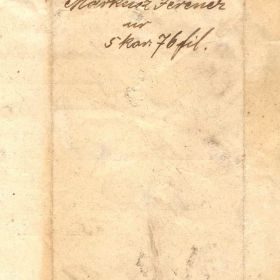 Markusz Ferencz
úr
5 kor. 76 fil.